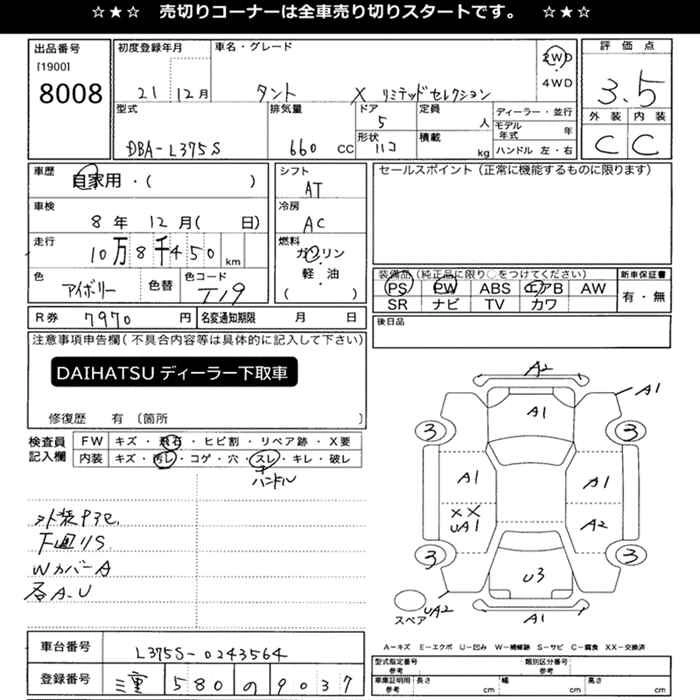 ☆★☆ 売切りコーナーは全車売り切りスタートです。 ☆★☆
出品番号
[1900]
8008
初度登録年月
21 12月
車名・グレード
タント X リミテッドセレクション
2WD
4WD
評価点
3.5
外装 内装
C C
型式
DBA-L375S
排気量
660 CC
ドア
5
形状
ハコ
定員
人
積載
kg
ディーラー・並行
モデル年式 年
ハンドル 左・右
車歴
自家用・( )
車検
8年 12月( 日)
走行
10万8千450km
色
アイボリー
色替
色コード
T19
シフト
AT
冷房
AC
燃料
ガソリン
軽・油
( )
セールスポイント(正常に機能するものに限ります)
装備品(純正品に限り○をつけてください)
PS PW ABS エアB AW
SR ナビ TV カワ
新車保証書
有・無
R券 7970円
名変通知期限 月 日
後日品
注意事項申告欄(不具合内容等は具体的に記入して下さい)
DAIHATSU ディーラー下取車
修復歴 有 〔箇所
検査員
記入欄
FW キズ・飛石・ヒビ割・リペア跡・X要
内装 キズ・汚レ・コゲ・穴・スレ・キレ・破レ
ハンドル
下廻りS
WカバーA
各A.U
A2
A1
A1
3
3
A1
A1
XX
UA1
A2
3
3
U3
スペア
UA2
A1
A-キズ E-エクボ U-凹み W-補修跡 S-サビ C-腐食 XX-交換済
車台番号
L375S-0243564
登録番号
三重 580 の 9037
型式指定番号
参考
類別区分番号
参考
車庫証明用
参考
長さ cm
幅 cm
高さ cm